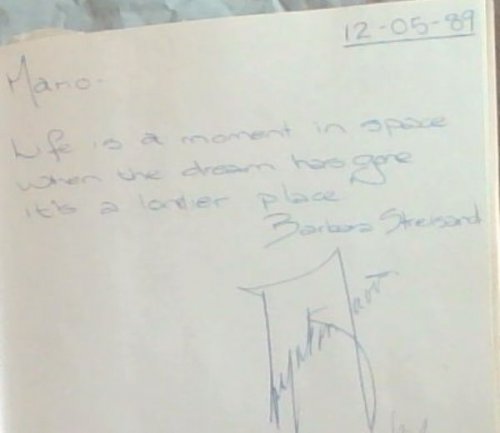 12-05-89
Mario-
Life is a moment in space
when the dream has gone
it's a lonlier place
Barbara Streisand